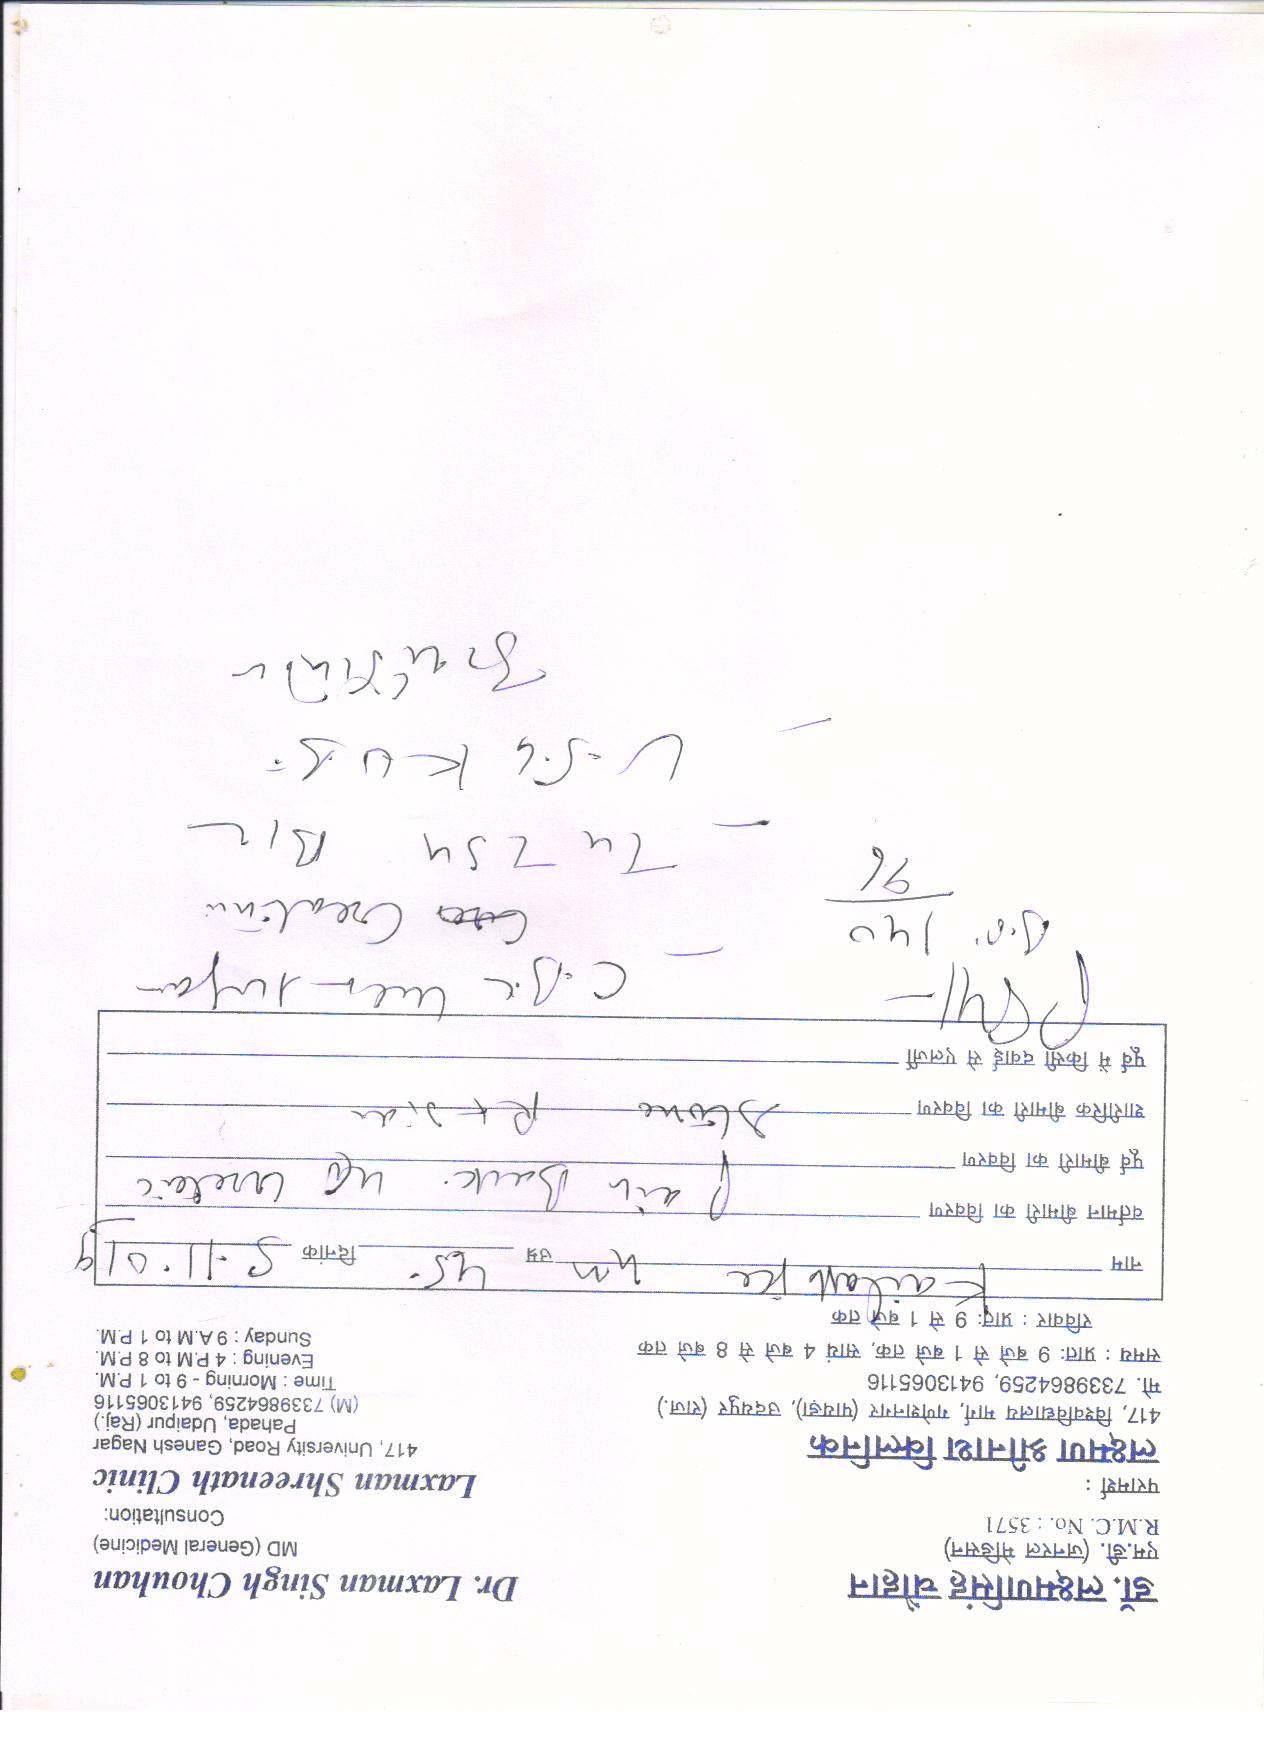 डॉ. लक्ष्मणसिंह चौहान
एम.डी. (जनरल मेडिसन)
R.M.C. No. : 3571
परामर्श :
लक्ष्मण श्रीनाथ क्लिनिक
417, विश्वविद्यालय मार्ग, गणेशनगर (पायड़ा), उदयपुर (राज.)
मो. 7339864259, 9413065116
समय : प्रातः 9 बजे से 1 बजे तक, सायं 4 बजे से 8 बजे तक
रविवार : प्रातः 9 से 1 बजे तक
Dr. Laxman Singh Chouhan
MD (General Medicine)
Consultation:
Laxman Shreenath Clinic
417, University Road, Ganesh Nagar
Pahada, Udaipur (Raj.)
(M) 7339864259, 9413065116
Time : Morning - 9 to 1 P.M.
Evening : 4 P.M to 8 P.M.
Sunday : 9 A.M to 1 P.M.
नाम Kailash उम्र 45 दिनांक
वर्तमान बीमारी का विवरण Pain Back ureteric
पूर्व बीमारी का विवरण
शारीरिक बीमारी का विवरण Stone Rt
पूर्व में किसी दवाई से एलर्जी
C.B.C
Creatinine
140
96
T3 T4 TSH B12
U.S.G K.U.B.